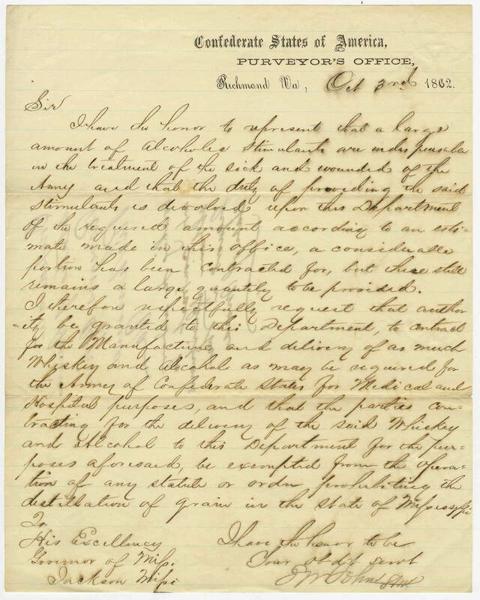 Confederate States of America,
PURVEYOR'S OFFICE,
Richmond Va, Oct 3rd 1862.
Sir
I have the honor to represent that a large
amount of Alcoholic Stimulants are indispensable
in the treatment of the sick and wounded of the
Army and that the duty of providing the said
stimulants is devolved upon this Department
Of the required amount according to an esti-
mate made in this office, a considerable
portion has been contracted for, but there still
remains a large quantity to be provided.
I therefore respectfully request that author
ity be granted to this Department, to contract
for the Manufacture and delivery of as much
Whiskey and Alcohol as may be required for
the Army of Confederate States for Medical and
Hospital purposes, and that the parties con-
tracting for the delivery of the said Whiskey
and Alcohol to this Department for the pur-
poses aforesaid, be exempted from the opera-
tion of any statute or order prohibiting the
distillation of grain in the State of Mississippi
To
His Excellency
Governor of Miss.
Jackson Missi
I have the honor to be
Your obdt servt